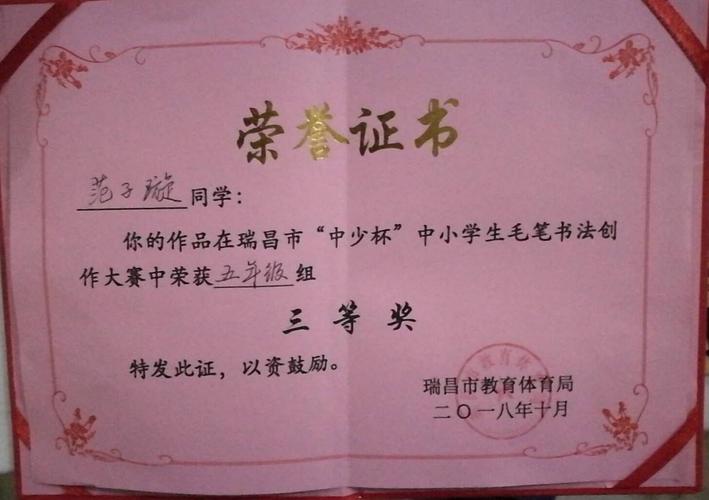 荣誉证书
范子璇同学：
你的作品在瑞昌市“中少杯”中小学生毛笔书法创
作大赛中荣获五年级组
三等奖
特发此证，以资鼓励。
瑞昌市教育体育局
二〇一八年十月